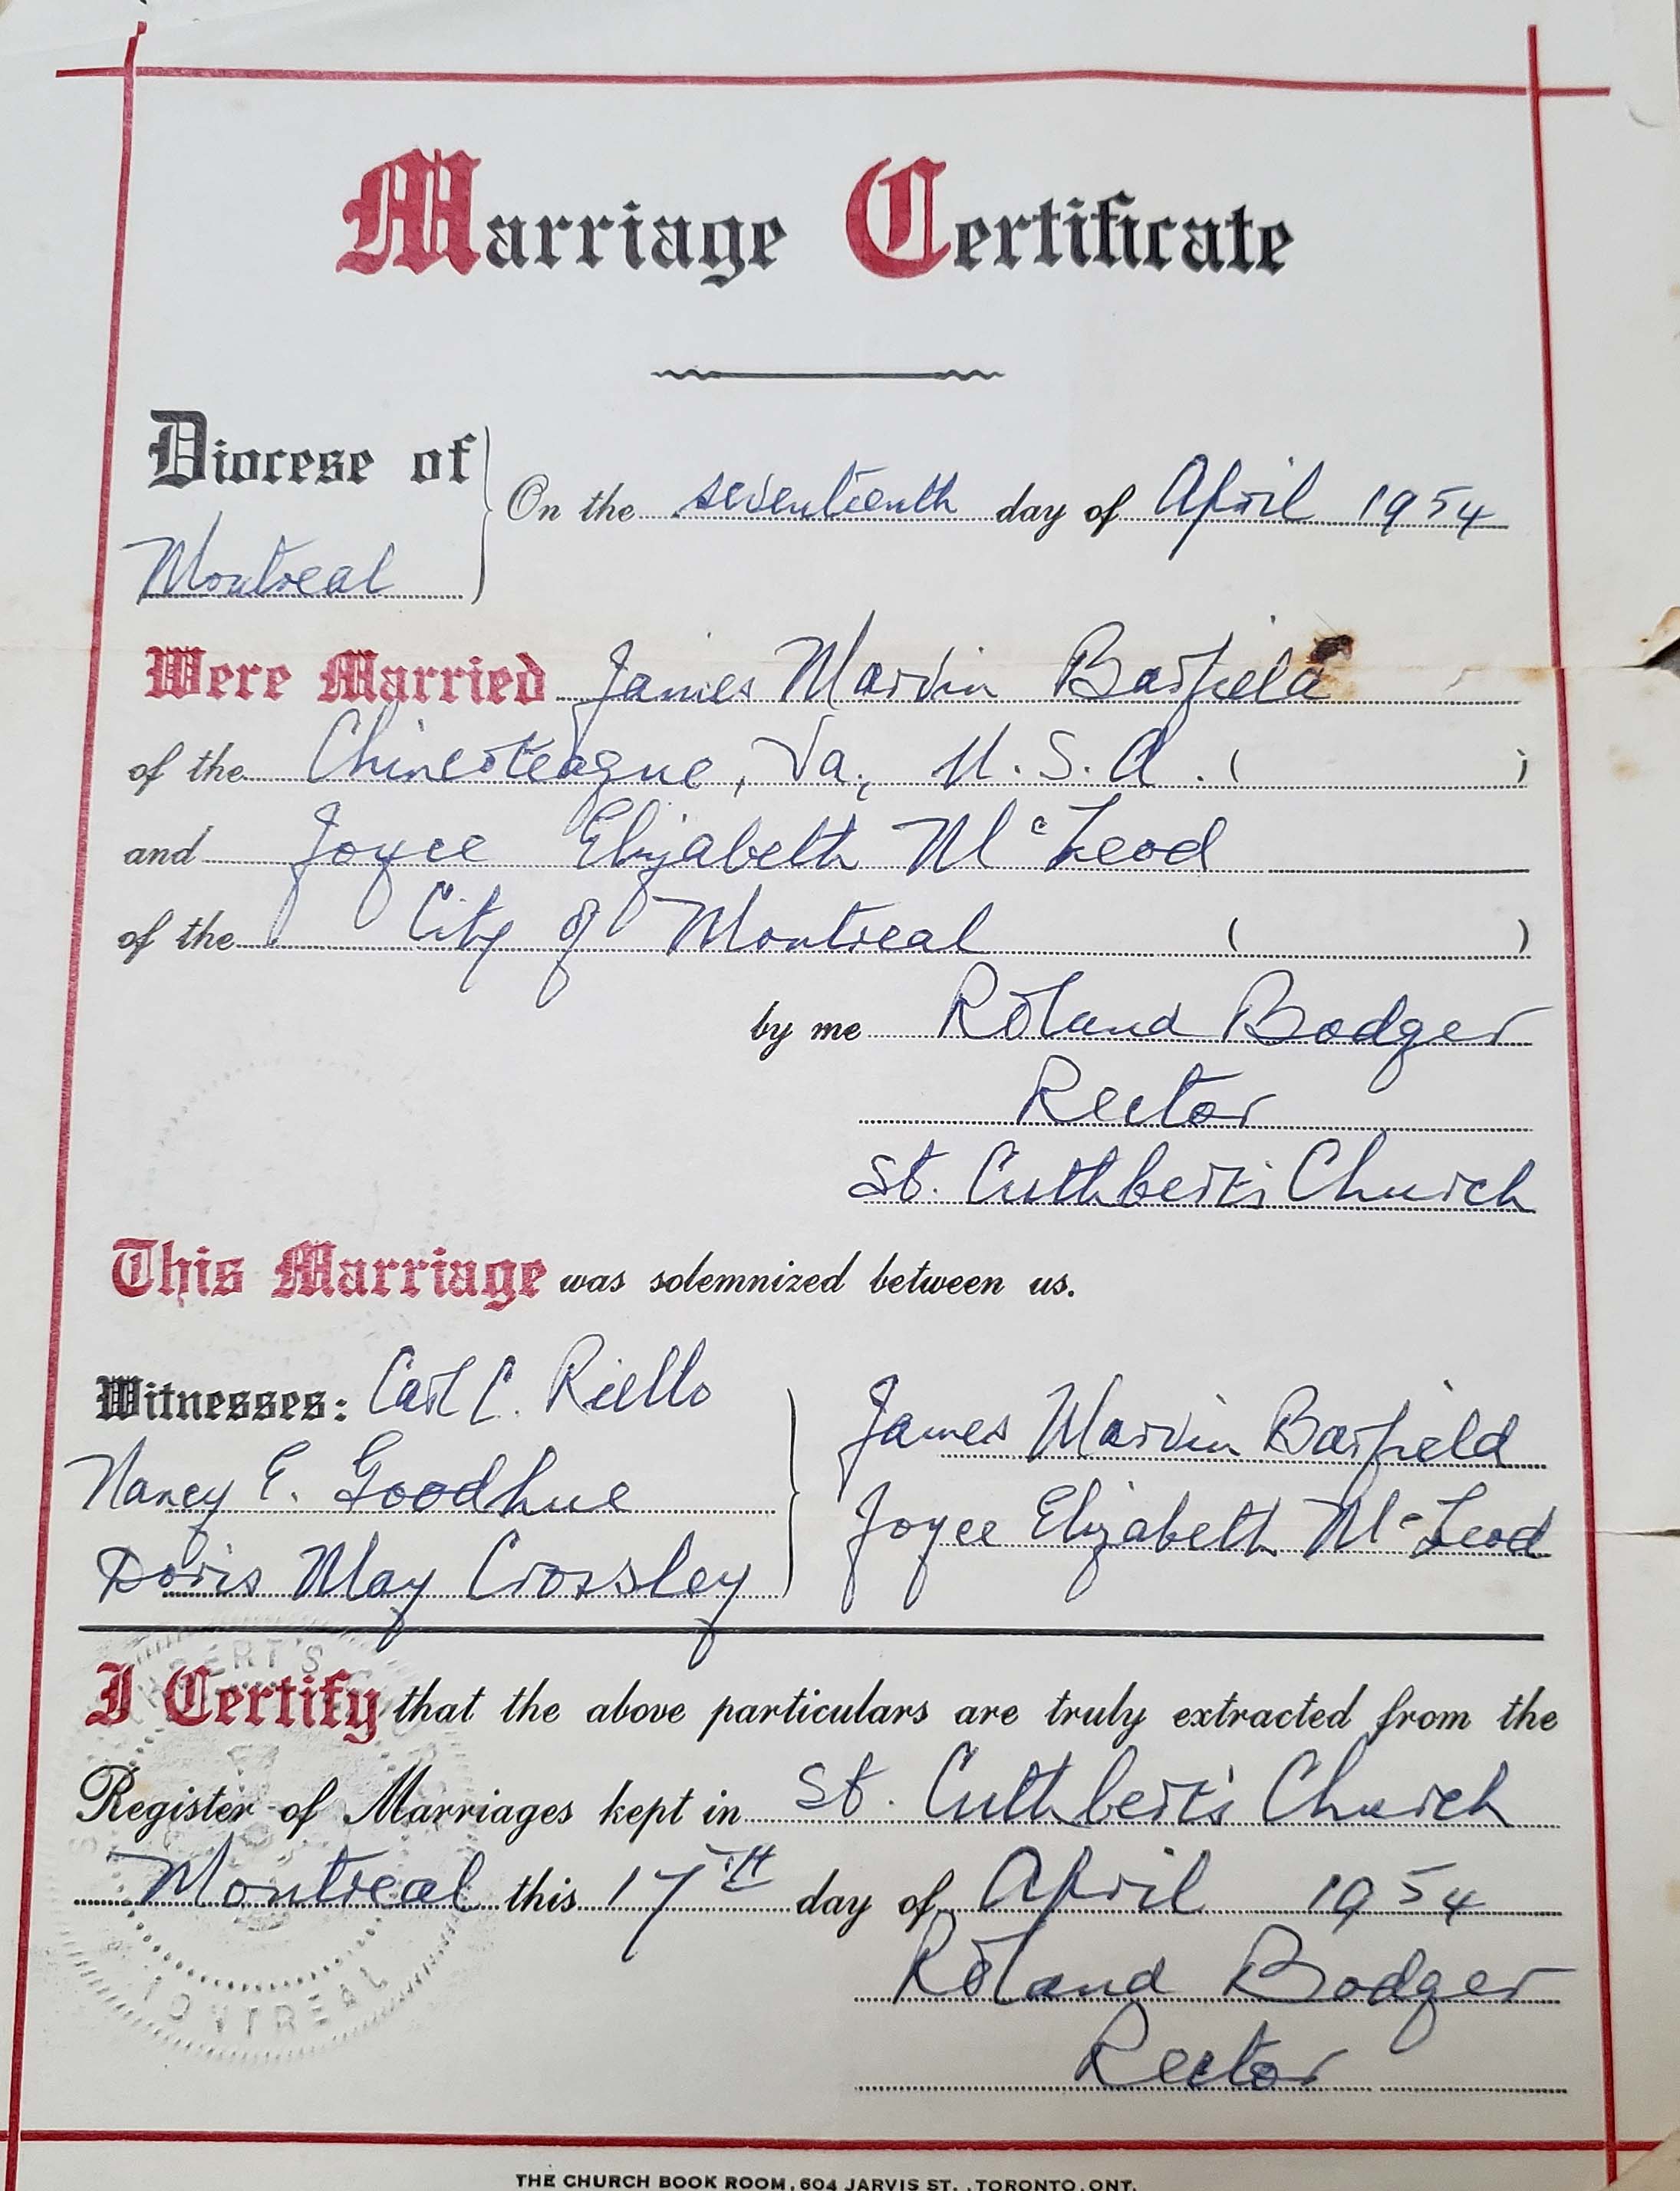 Marriage Certificate
Diocese of
On the seventeenth day of April 1954
Montreal
Were Married James Marvin Barfield
of the Chincoteague, Va., U.S.A. ( )
and Joyce Elizabeth McLeod
of the City of Montreal ( )
by me Roland Bodger
Rector
St. Cuthbert's Church
This Marriage was solemnized between us.
Witnesses: Carl C. Riello
James Marvin Barfield
Nancy E. Goodhue
Joyce Elizabeth McLeod
Doris May Crossley
I Certify that the above particulars are truly extracted from the
Register of Marriages kept in St. Cuthbert's Church
Montreal this 17TH day of April 1954
Roland Bodger
Rector
MONTREAL
THE CHURCH BOOK ROOM, 604 JARVIS ST., TORONTO, ONT.